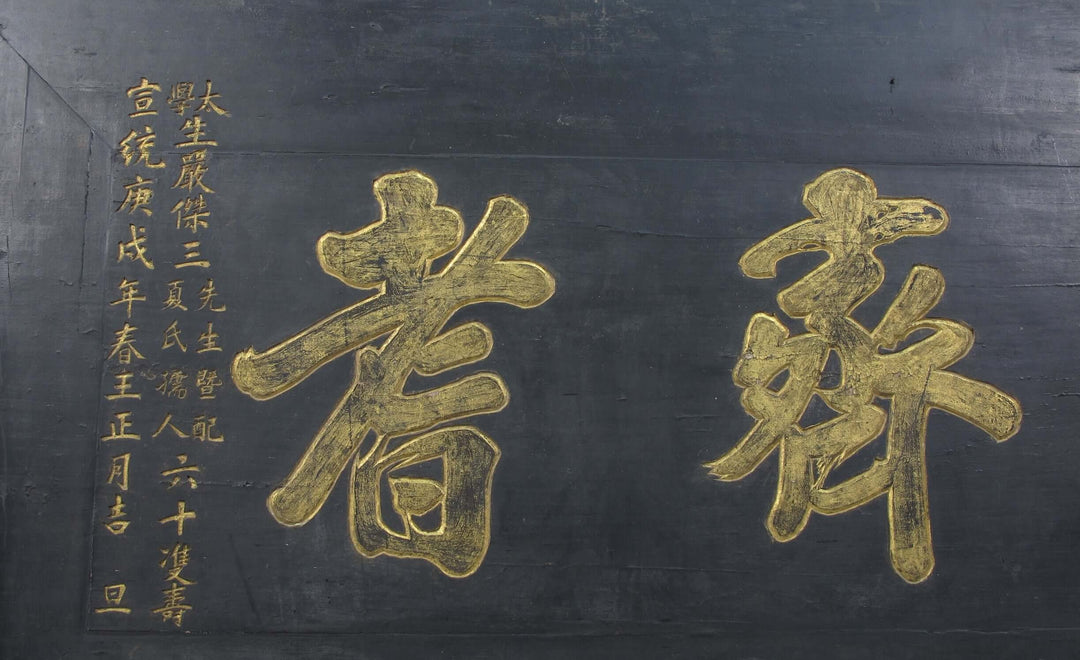 齊
耆
太學生嚴傑三先生暨配夏氏孺人六十雙壽
宣統庚戌年春王正月吉旦